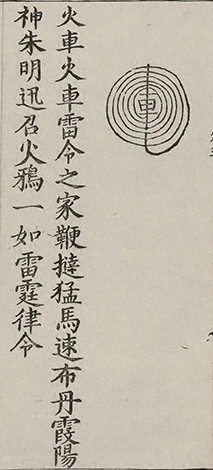 田
火車火車雷令之家鞭撻猛馬速布丹霞陽
神朱明迅召火鴉一如雷霆律令